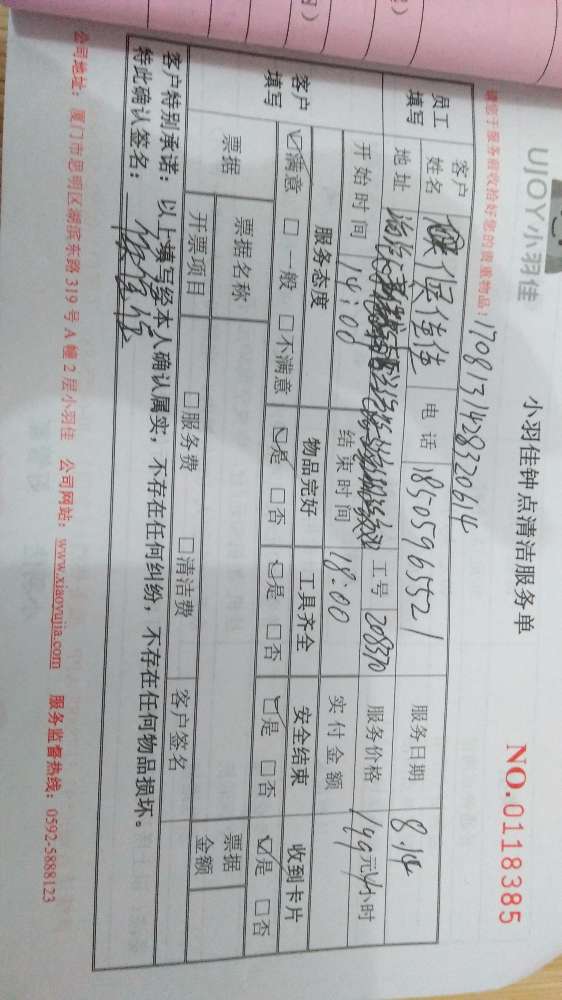 UJOY小羽佳
小羽佳钟点清洁服务单
NO.0118385
请您于服务前收拾好您的贵重物品:
1708131428320614
员工填写
客户姓名
电话 18505965521
服务日期 8.14
地址
工号 208370
服务价格 199元4小时
开始时间 14:00
结束时间 18:00
实付金额
客户填写
服务态度 物品完好 工具齐全 安全结束 收到卡片
☑满意 □一般 □不满意 ☑是 □否 ☑是 □否 ☑是 □否 ☑是 □否
票据 票据名称 票据金额
开票项目 □服务费 □清洁费 客户签名
客户特别承诺:以上填写经本人确认属实,不存在任何纠纷,不存在任何物品损坏。
特此确认签名:
公司地址:厦门市思明区湖滨东路319号A幢2层小羽佳 公司网站:www.xiaoyujia.com 服务监督热线:0592-5888123